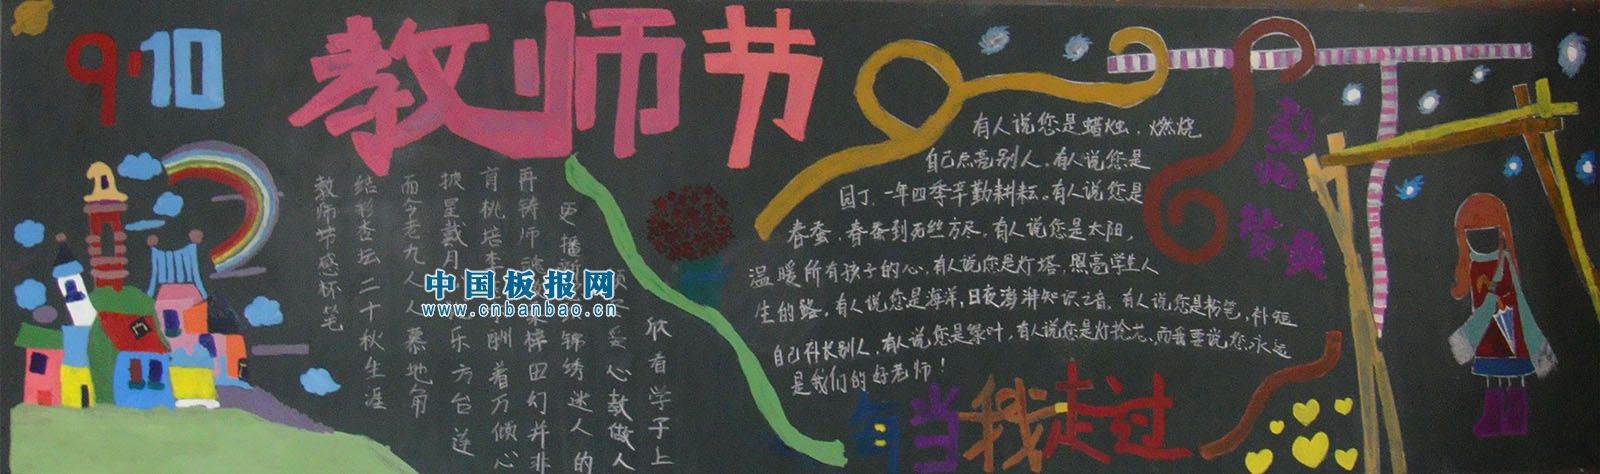 9·10
教师节
教师节感怀笔
结彩杏坛二十秋生涯
而今老九人人慕地帘
披星戴月 乐方台莲
育桃培李 酬着万倾心
再铸师魂 梯田幻并非
更播 锦绣迷人的
爱心教做人
欣看学子上
中国板报网
www.cnbanbao.cn
有人说您是蜡烛，燃烧
自己照亮别人。有人说您是
园丁，一年四季辛勤耕耘。有人说您是
春蚕，春蚕到死丝方尽，有人说您是太阳，
温暖所有孩子的心，有人说您是灯塔，照亮学生人
生的路，有人说您是海洋，日夜澎湃知识之音，有人说您是粉笔，补短
自己补长别人，有人说您是 叶，有人说您是灯 芯，而我要说您永远
是我们的好老师！
每当我走过